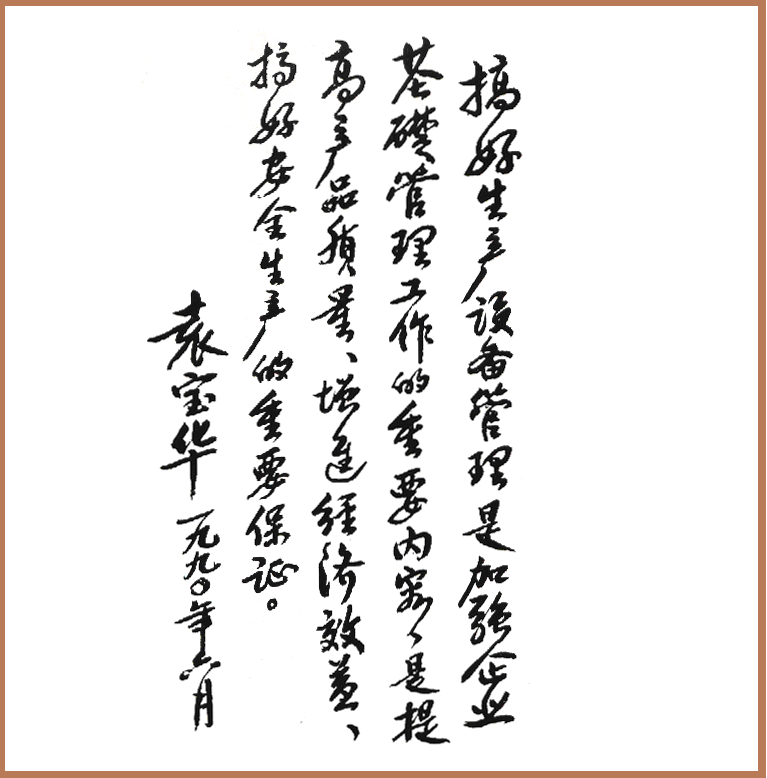 搞好生产设备管理是加强企业
基礎管理工作的重要内容、是提
高产品质量、增進經济效益、
搞好安全生产的重要保证。
袁宝华 一九九〇年六月